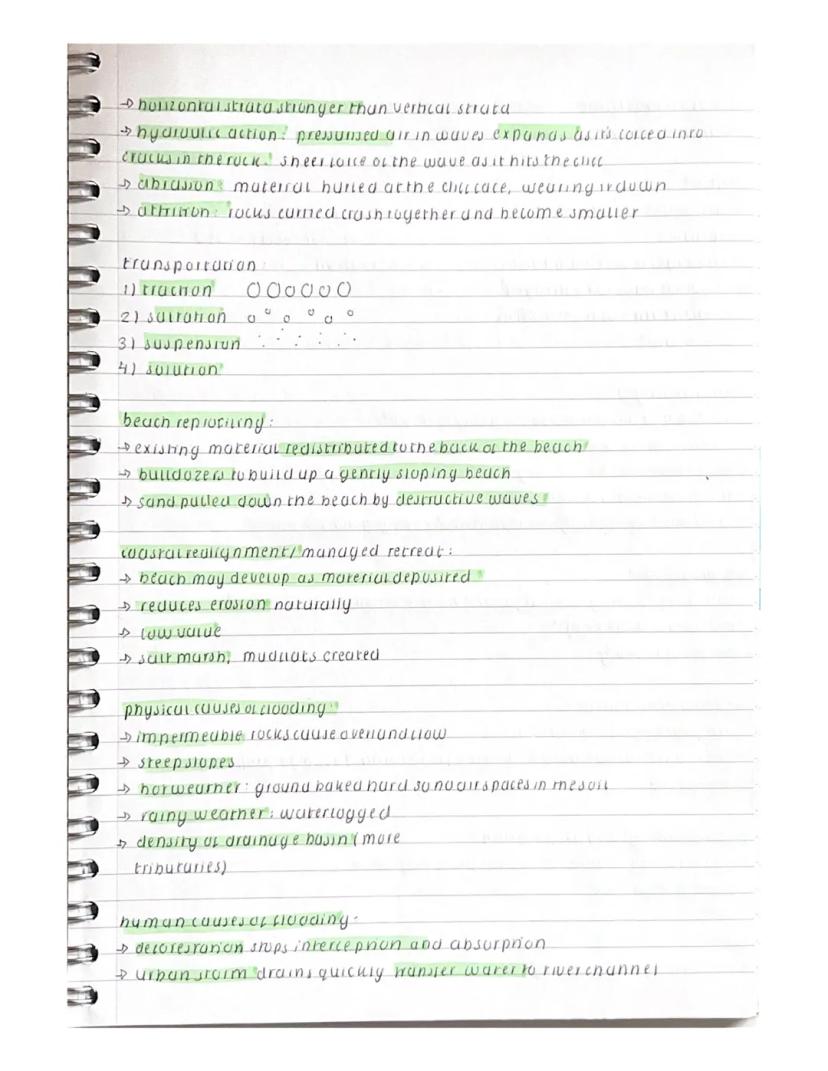 → horizontal strata stronger than vertical strata
→ hydraulic action: pressurised air in waves expands as it's forced into
cracks in the rock. sheer force of the wave as it hits the cliff
→ abrasion: material hurled at the cliff face, wearing it down
→ attrition: rocks carried crash together and become smaller
transportation:
1) traction
2) saltation
3) suspension
4) solution
beach reprofiling:
→ existing material redistributed to the back of the beach
→ bulldozers to build up a gently sloping beach
→ sand pulled down the beach by destructive waves
coastal realignment/managed retreat:
→ beach may develop as material deposited
→ reduces erosion naturally
→ low value
→ salt marsh, mudflats created
physical causes of flooding:
→ impermeable rocks cause overland flow
→ steep slopes
→ hot weather: ground baked hard so no air spaces in the soil
→ rainy weather: waterlogged
→ density of drainage basin (more
tributaries)
human causes of flooding:
→ deforestation stops interception and absorption
→ urban storm drains quickly transfer water to river channel